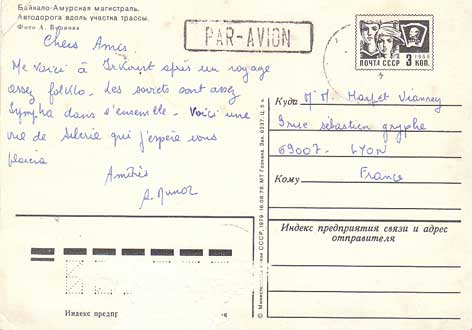 Байкало-Амурская магистраль.
Автодорога вдоль участка трассы.
Фото А.
PAR-AVION
ПОЧТА СССР 3 КОП.
1966
Chers Amis
Me voici à Irkourt après un voyage
assez folklo. Les soviets sont assez
sympha dans l'ensemble. Voici une
vue de Siberia qui j'espère vous
plaira
Amitiés
Куда
M M.
Vianney
3 rue sébastien gryphe
69007 - LYON
Кому
France
Индекс предприятия связи и адрес
отправителя
Индекс предпр
© Министерство связи СССР, 1979